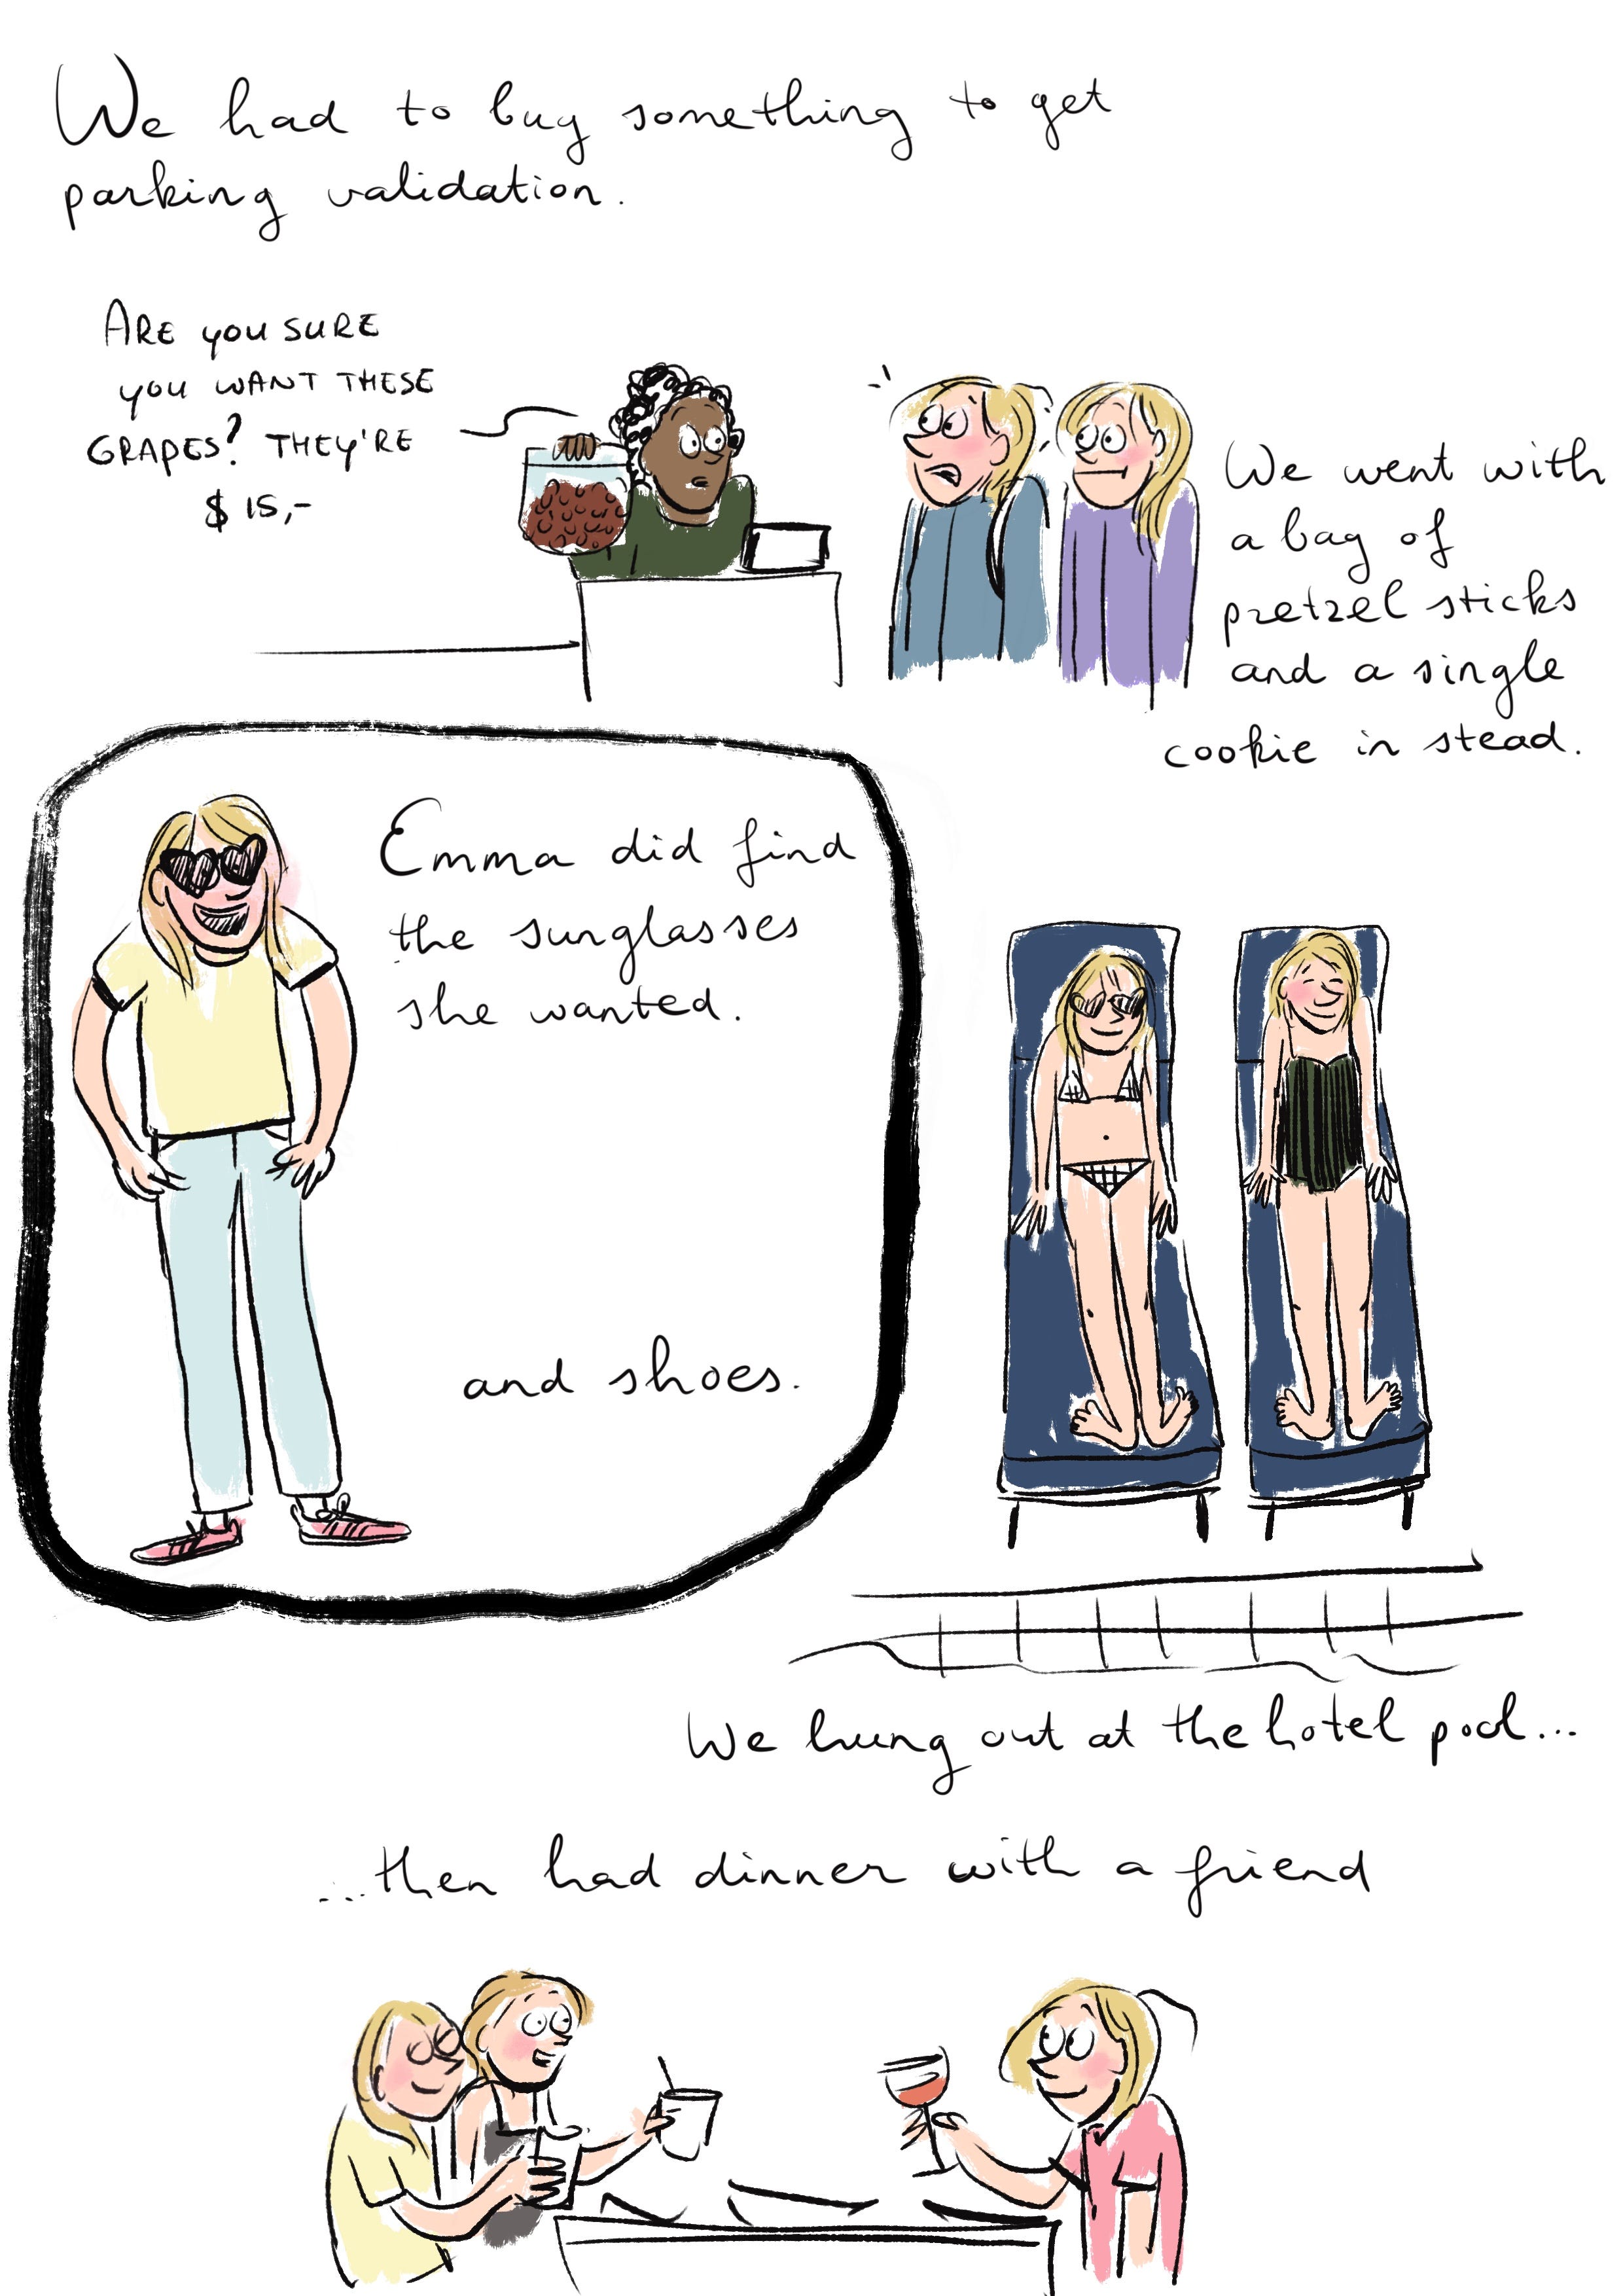 We had to buy something to get
parking validation.
ARE you SURE
you WANT THESE
GRAPES? THEY'RE
$ 15,-
We went with
a bag of
pretzel sticks
and a single
cookie in stead.
Emma did find
the sunglasses
she wanted.
and shoes.
We hung out at the hotel pool...
...then had dinner with a friend